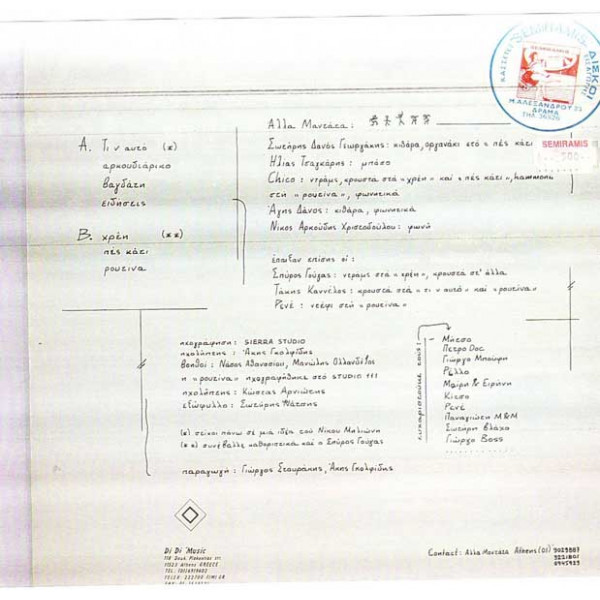 ΚΑΣΣΕΤΕΣ SEMIRAMIS ΔΙΣΚΟΙ
Μ. ΑΛΕΞΑΝΔΡΟΥ 21
ΔΡΑΜΑ
ΤΗΛ. 36920
SEMIRAMIS
500
Α. Τι ν' αυτό (*)
αρκουδιάρικο
Βαγδάτη
ειδήσεις
Β. χρέη (**)
πες κάτι
ρουτίνα
Άλλα Μαντάτα:
Σωτήρης Δανός Γεωργάκης: κιθάρα, οργανάκι στο «πες κάτι
Ηλίας Τσαγκάρης: μπάσο
Chico: ντραμς, κρουστά στα «χρέη» και «πες κάτι», hammond
στη «ρουτίνα», φωνητικά
Άγης Δάνος: κιθάρα, φωνητικά
Νίκος Αρκούδης Χριστοδούλου: φωνή
έπαιξαν επίσης οι:
Σπύρος Γούγας: ντραμς στα «χρέη», κρουστά στ' άλλα
Τάκης Καννέλος: κρουστά στα «τι ν' αυτό» και «ρουτίνα»
Ρενέ: ντέφι στη «ρουτίνα»
ηχογράφηση: SIERRA STUDIO
ηχολήπτης: Άκης Γκολφίδης
Βοηθοί: Νάσος Αθανασίου, Μανώλης Ολλανδέζος
η «ρουτίνα» ηχογραφήθηκε στο STUDIO 111
ηχολήπτης: Κώστας Αρνιώτης
εξώφυλλο: Σωτήρης Νάτσης
(*) στίχοι πάνω σε μια ιδέα του Νίκου Μηλιώνη
(**) συνέβαλλε καθοριστικά και ο Σπύρος Γούγας
παραγωγή: Γιώργος Σταυράκης, Άκης Γκολφίδης
ευχαριστούμε τους:
Μήτσο
Πέτρο Doc
Γιώργο Μπούφη
Ρέλλο
Μαίρη & Ειρήνη
Κίτσο
Ρενέ
Παναγιώτη M&M
Σωτήρη Βλάχο
Γιώργο Boss
Di Di Music
11523 Athens GREECE
Contact: Άλλα Μαντάτα Athens (01)